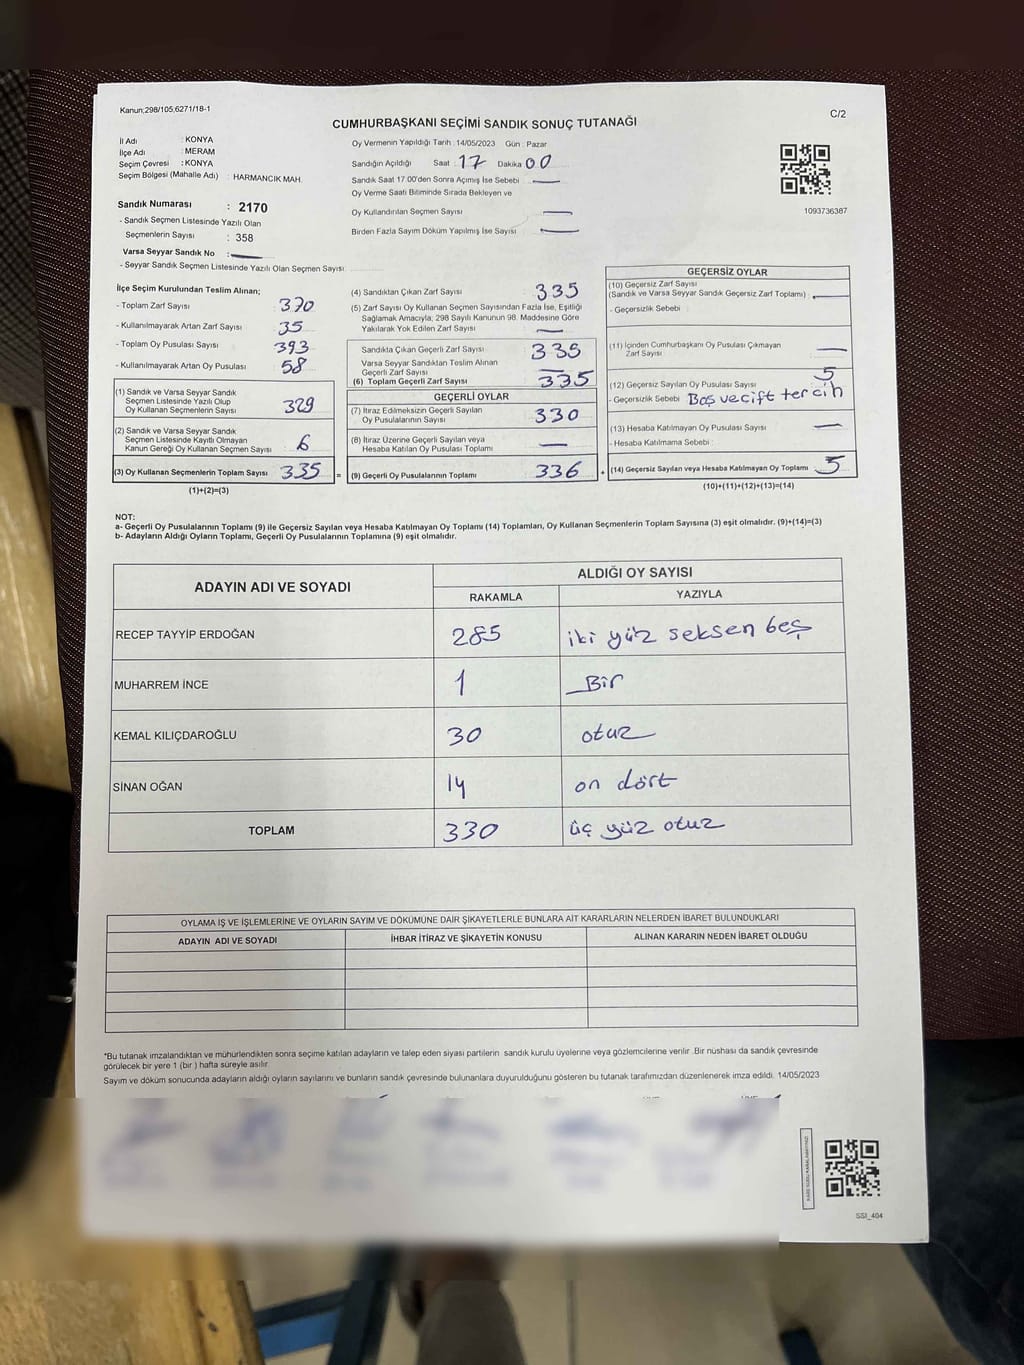 Kanun;298/105,6271/18-1
C/2
CUMHURBAŞKANI SEÇİMİ SANDIK SONUÇ TUTANAĞI
İl Adı : KONYA
İlçe Adı : MERAM
Seçim Çevresi : KONYA
Seçim Bölgesi (Mahalle Adı) : HARMANCIK MAH.
Oy Vermenin Yapıldığı Tarih :14/05/2023 Gün : Pazar
Sandığın Açıldığı Saat : 17 Dakika 00
Sandık Saat 17:00'den Sonra Açımış İse Sebebi
Oy Verme Saati Bitiminde Sırada Bekleyen ve
Oy Kullandırılan Seçmen Sayısı
Birden Fazla Sayım Döküm Yapılmış İse Sayısı
1093736387
Sandık Numarası : 2170
- Sandık Seçmen Listesinde Yazılı Olan
Seçmenlerin Sayısı : 358
Varsa Seyyar Sandık No :
- Seyyar Sandık Seçmen Listesinde Yazılı Olan Seçmen Sayısı
İlçe Seçim Kurulundan Teslim Alınan;
- Toplam Zarf Sayısı 370
- Kullanılmayarak Artan Zarf Sayısı 35
- Toplam Oy Pusulası Sayısı 393
- Kullanılmayarak Artan Oy Pusulası 58
(1) Sandık ve Varsa Seyyar Sandık
Seçmen Listesinde Yazılı Olup
Oy Kullanan Seçmenlerin Sayısı 329
(2) Sandık ve Varsa Seyyar Sandık
Seçmen Listesinde Kayıtlı Olmayan
Kanun Gereği Oy Kullanan Seçmen Sayısı 6
(3) Oy Kullanan Seçmenlerin Toplam Sayısı 335 =
(1)+(2)=(3)
(4) Sandıktan Çıkan Zarf Sayısı : 335
(5) Zarf Sayısı Oy Kullanan Seçmen Sayısından Fazla İse, Eşitliği
Sağlamak Amacıyla; 298 Sayılı Kanunun 98. Maddesine Göre
Yakılarak Yok Edilen Zarf Sayısı
Sandıkta Çıkan Geçerli Zarf Sayısı 335
Varsa Seyyar Sandıktan Teslim Alınan
Geçerli Zarf Sayısı
(6) Toplam Geçerli Zarf Sayısı 335
GEÇERLİ OYLAR
(7) İtiraz Edilmeksizin Geçerli Sayılan
Oy Pusulasının Sayısı 330
(8) İtiraz Üzerine Geçerli Sayılan veya
Hesaba Katılan Oy Pusulası Toplamı
(9) Geçerli Oy Pusulalarının Toplamı 336 +
GEÇERSİZ OYLAR
(10) Geçersiz Zarf Sayısı
(Sandık ve Varsa Seyyar Sandık Geçersiz Zarf Toplamı) :
- Geçersizlik Sebebi :
(11) İçinden Cumhurbaşkanı Oy Pusulası Çıkmayan
Zarf Sayısı
(12) Geçersiz Sayılan Oy Pusulası Sayısı 5
- Geçersizlik Sebebi : Boş ve çift tercih
(13) Hesaba Katılmayan Oy Pusulası Sayısı
- Hesaba Katılmama Sebebi :
(14) Geçersiz Sayılan veya Hesaba Katılmayan Oy Toplamı 5
(10)+(11)+(12)+(13)=(14)
NOT:
a- Geçerli Oy Pusulalarının Toplamı (9) ile Geçersiz Sayılan veya Hesaba Katılmayan Oy Toplamı (14) Toplamları, Oy Kullanan Seçmenlerin Toplam Sayısına (3) eşit olmalıdır. (9)+(14)=(3)
b- Adayların Aldığı Oyların Toplamı, Geçerli Oy Pusulalarının Toplamına (9) eşit olmalıdır.
ADAYIN ADI VE SOYADI ALDIĞI OY SAYISI
RAKAMLA YAZIYLA
RECEP TAYYİP ERDOĞAN 285 iki yüz seksen beş
MUHARREM İNCE 1 Bir
KEMAL KILIÇDAROĞLU 30 otuz
SİNAN OĞAN 14 on dört
TOPLAM 330 üç yüz otuz
OYLAMA İŞ VE İŞLEMLERİNE VE OYLARIN SAYIM VE DÖKÜMÜNE DAİR ŞİKAYETLERLE BUNLARA AİT KARARLARIN NELERDEN İBARET BULUNDUKLARI
ADAYIN ADI VE SOYADI İHBAR İTİRAZ VE ŞİKAYETİN KONUSU ALINAN KARARIN NEDEN İBARET OLDUĞU
*Bu tutanak imzalandıktan ve mühürlendikten sonra seçime katılan adayların ve talep eden siyasi partilerin sandık kurulu üyelerine veya gözlemcilerine verilir .Bir nüshası da sandık çevresinde
görülecek bir yere 1 (bir ) hafta süreyle asılır.
Sayım ve döküm sonucunda adayların aldığı oyların sayılarını ve bunların sandık çevresinde bulunanlara duyurulduğunu gösteren bu tutanak tarafımızdan düzenlenerek imza edildi. 14/05/2023
SSI_404